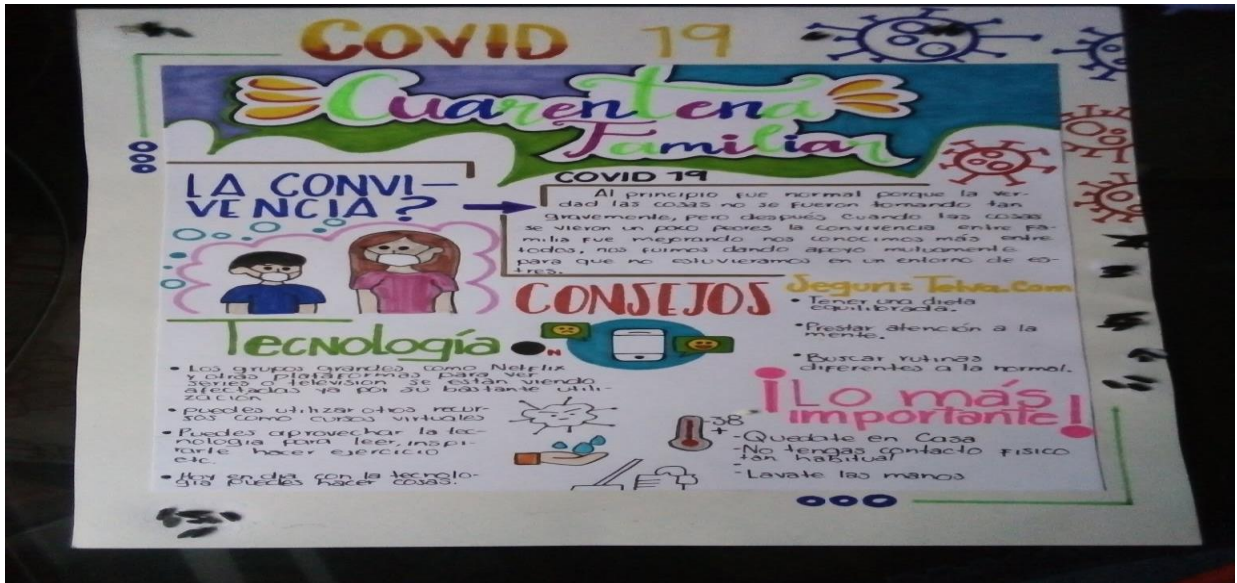 COVID 19
Cuarentena
Familiar
LA CONVI-
VENCIA?
COVID 19
Al principio fue normal porque la ver-
dad las cosas no se fueron tornando tan
gravemente, pero después cuando las cosas
se vieron un poco peores la convivencia entre fa-
milia fue mejorando nos conocimos más entre
todos, nos fuimos dando apoyo mutuamente
para que no estuvieramos en un entorno de es-
tres.
CONSEJOS
Segun: Telva.com
• Tener una dieta
equilibrada.
• Prestar atención a la
mente.
• Buscar rutinas
diferentes a la normal.
Tecnología
ON
• Los grupos grandes como Netflix
y otras plataformas para ver
series o television se están viendo
afectadas ya por su bastante utili-
zación
• puedes utilizar otros recur-
sos como cursos virtuales
• Puedes aprovechar la tec-
nologia para leer, inspi-
rarte hacer ejercicio
etc.
• Hoy en dia con la tecnolo-
gia puedes hacer cosas.
38
+
¡Lo más
importante!
- Quedate en Casa
- No tengas contacto fisico
tan habitual
- Lavate las manos